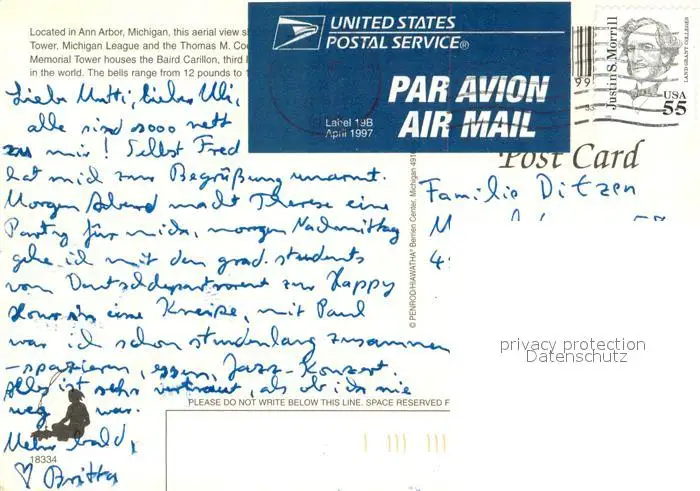 Located in Ann Arbor, Michigan, this aerial view s
Tower, Michigan League and the Thomas M. Coo
Memorial Tower houses the Baird Carillon, third l
in the world. The bells range from 12 pounds to 1
UNITED STATES
POSTAL SERVICE®
PAR AVION
AIR MAIL
Label 19B
April 1997
Justin S. Morrill
LAND-GRANT COLLEGES
USA
55
99
Post Card
Liebe Mutti, lieber Uli,
alle sind sooo nett
zu mir! Selbst Fred
hat mich zur Begrüßung umarmt.
Morgen Abend macht Therese eine
Party für mich, morgen Nachmittag
gehe ich mit den grad. students
vom Deutschdepartment zur Happy
Hour in eine Kneipe, mit Paul
war ich schon stundenlang zusammen
- spazieren, essen, Jazz-Konzert.
Alles ist sehr vertraut, als ob ich nie
weg war.
Mehr bald,
♡ Britta
Familie Ditzen
M
4
© PENROD/HIAWATHA® Berrien Center, Michigan 491
privacy protection
Datenschutz
PLEASE DO NOT WRITE BELOW THIS LINE. SPACE RESERVED F
18334